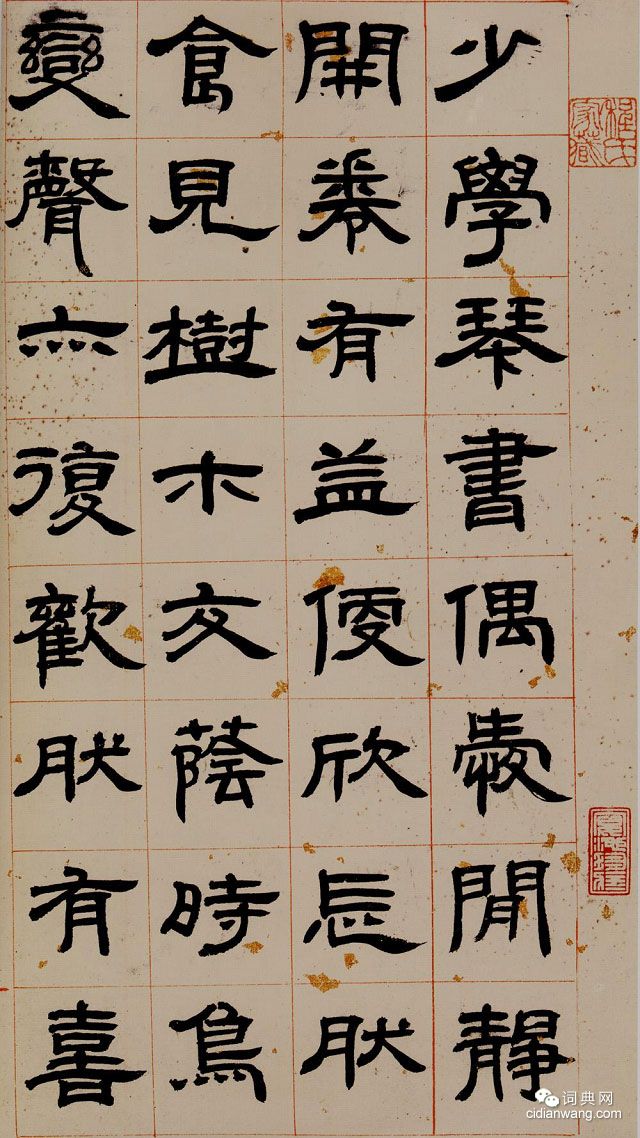 少學琴書偶愛閒靜
開卷有益便欣忘肰
食見樹木交蔭時鳥
變聲亦復歡肰有喜
程氏家藏
词典网
cidianwang.com